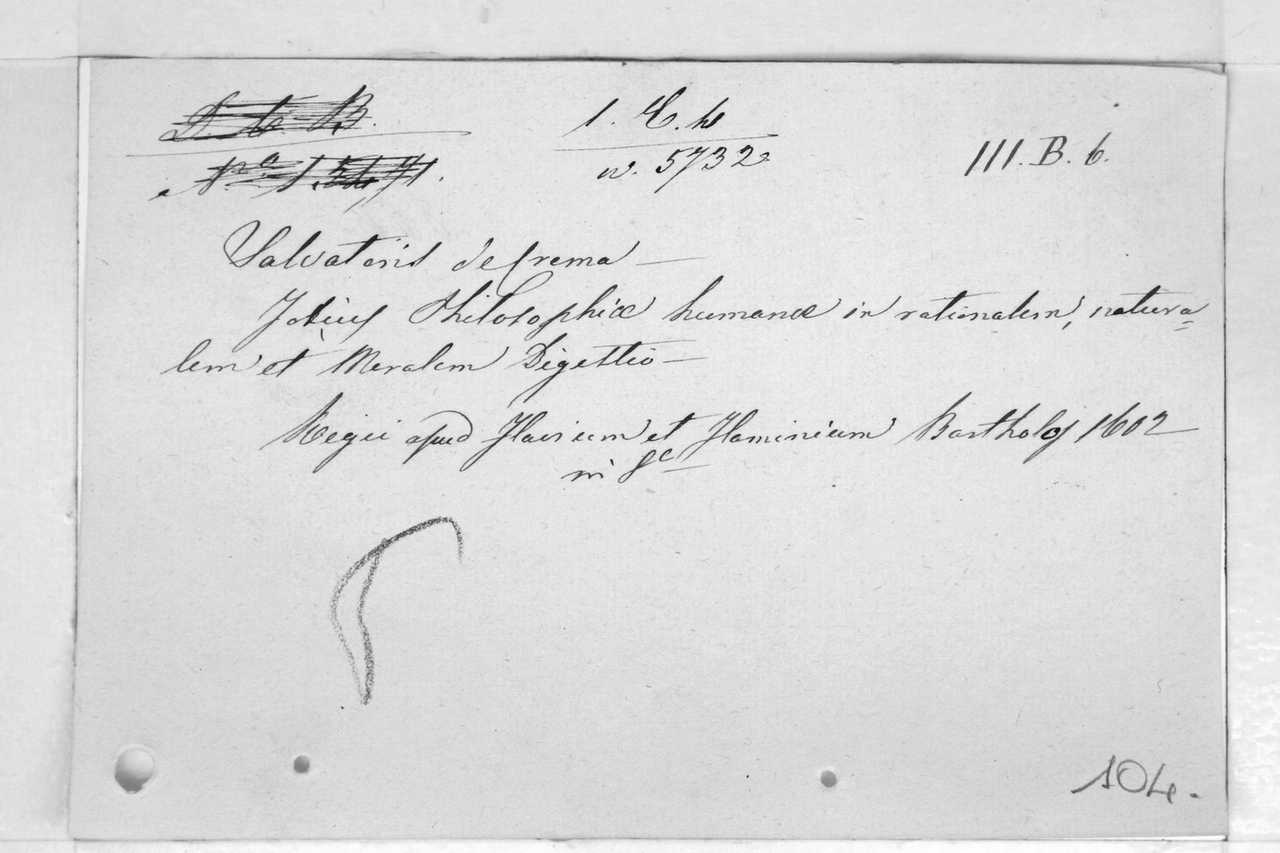 1. C. h
n. 5732
III. B. 6.
Salvatoris de Crema —
Totius Philosophiæ humanæ in rationalem, natura=
lem et Moralem Digestio —
Regii apud Flavium et Flaminium Bartholoj 1602
in 8.c
104.